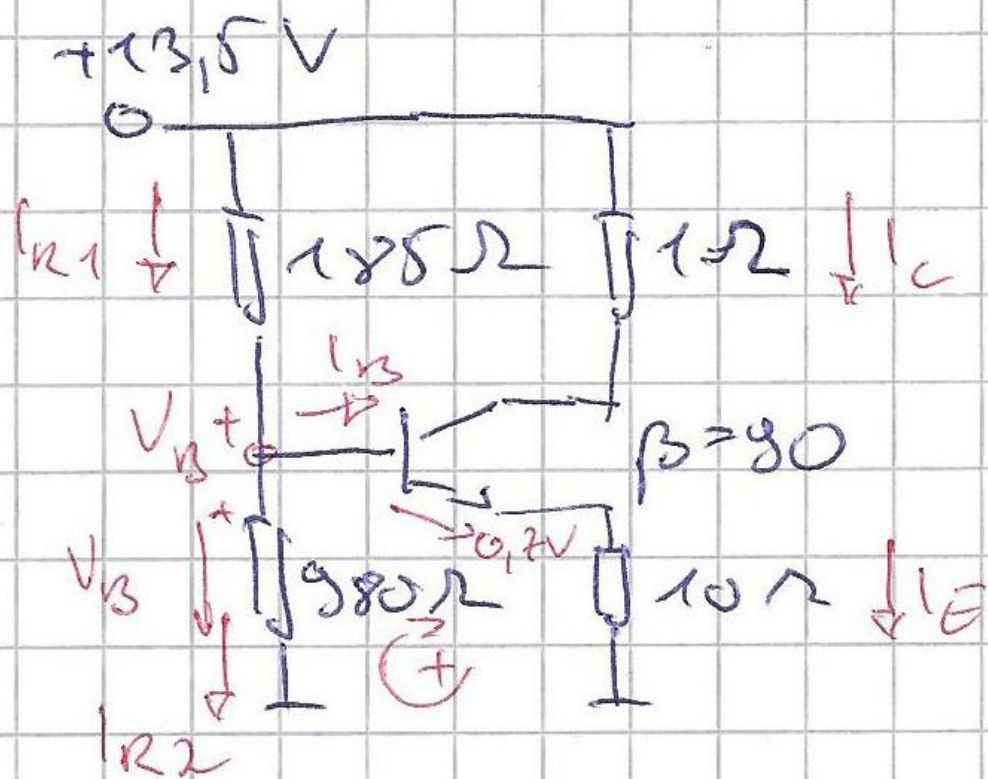 +13,5 V
I_R1
185Ω
1Ω
I_C
I_B
V_B +
β=90
+
0,7V
V_B
980Ω
10Ω
I_E
+
I_R2